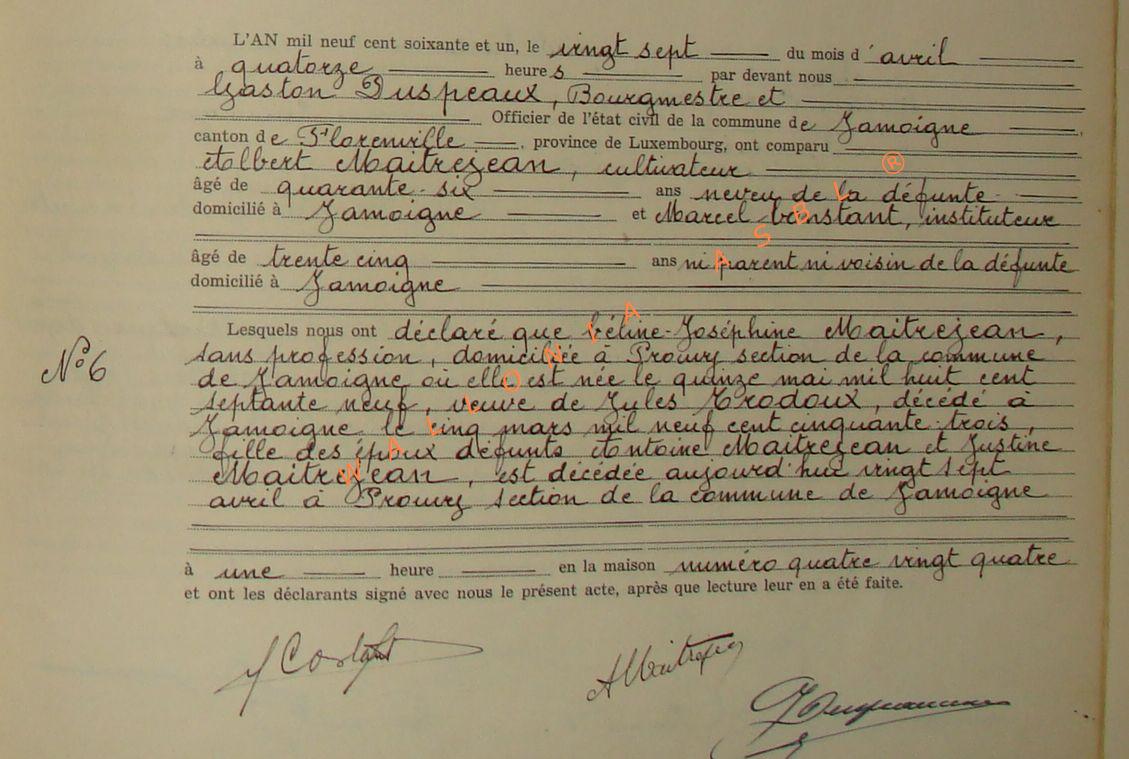 L'AN mil neuf cent soixante et un, le vingt sept du mois d'avril
à quatorze heures par devant nous
Gaston Duspeaux, Bourgmestre et
Officier de l'état civil de la commune de Jamoigne,
canton de Florenville, province de Luxembourg, ont comparu
Albert Maitrejean, cultivateur
âgé de quarante-six ans neveu de la défunte
domicilié à Jamoigne et Marcel Constant, instituteur
âgé de trente cinq ans ni parent ni voisin de la défunte
domicilié à Jamoigne
Lesquels nous ont déclaré que Céline-Joséphine Maitrejean,
sans profession, domiciliée à Prouvy section de la commune
N° 6
de Jamoigne où elle est née le quinze mai mil huit cent
septante neuf, veuve de Jules Trodoux, décédé à
Jamoigne le cinq mars mil neuf cent cinquante-trois,
fille des époux défunts Antoine Maitrejean et Justine
Maitrejean, est décédée aujourd'hui vingt sept
avril à Prouvy section de la commune de Jamoigne
à une heure en la maison numéro quatre vingt quatre
et ont les déclarants signé avec nous le présent acte, après que lecture leur en a été faite.
WALLONIA ASBL ®